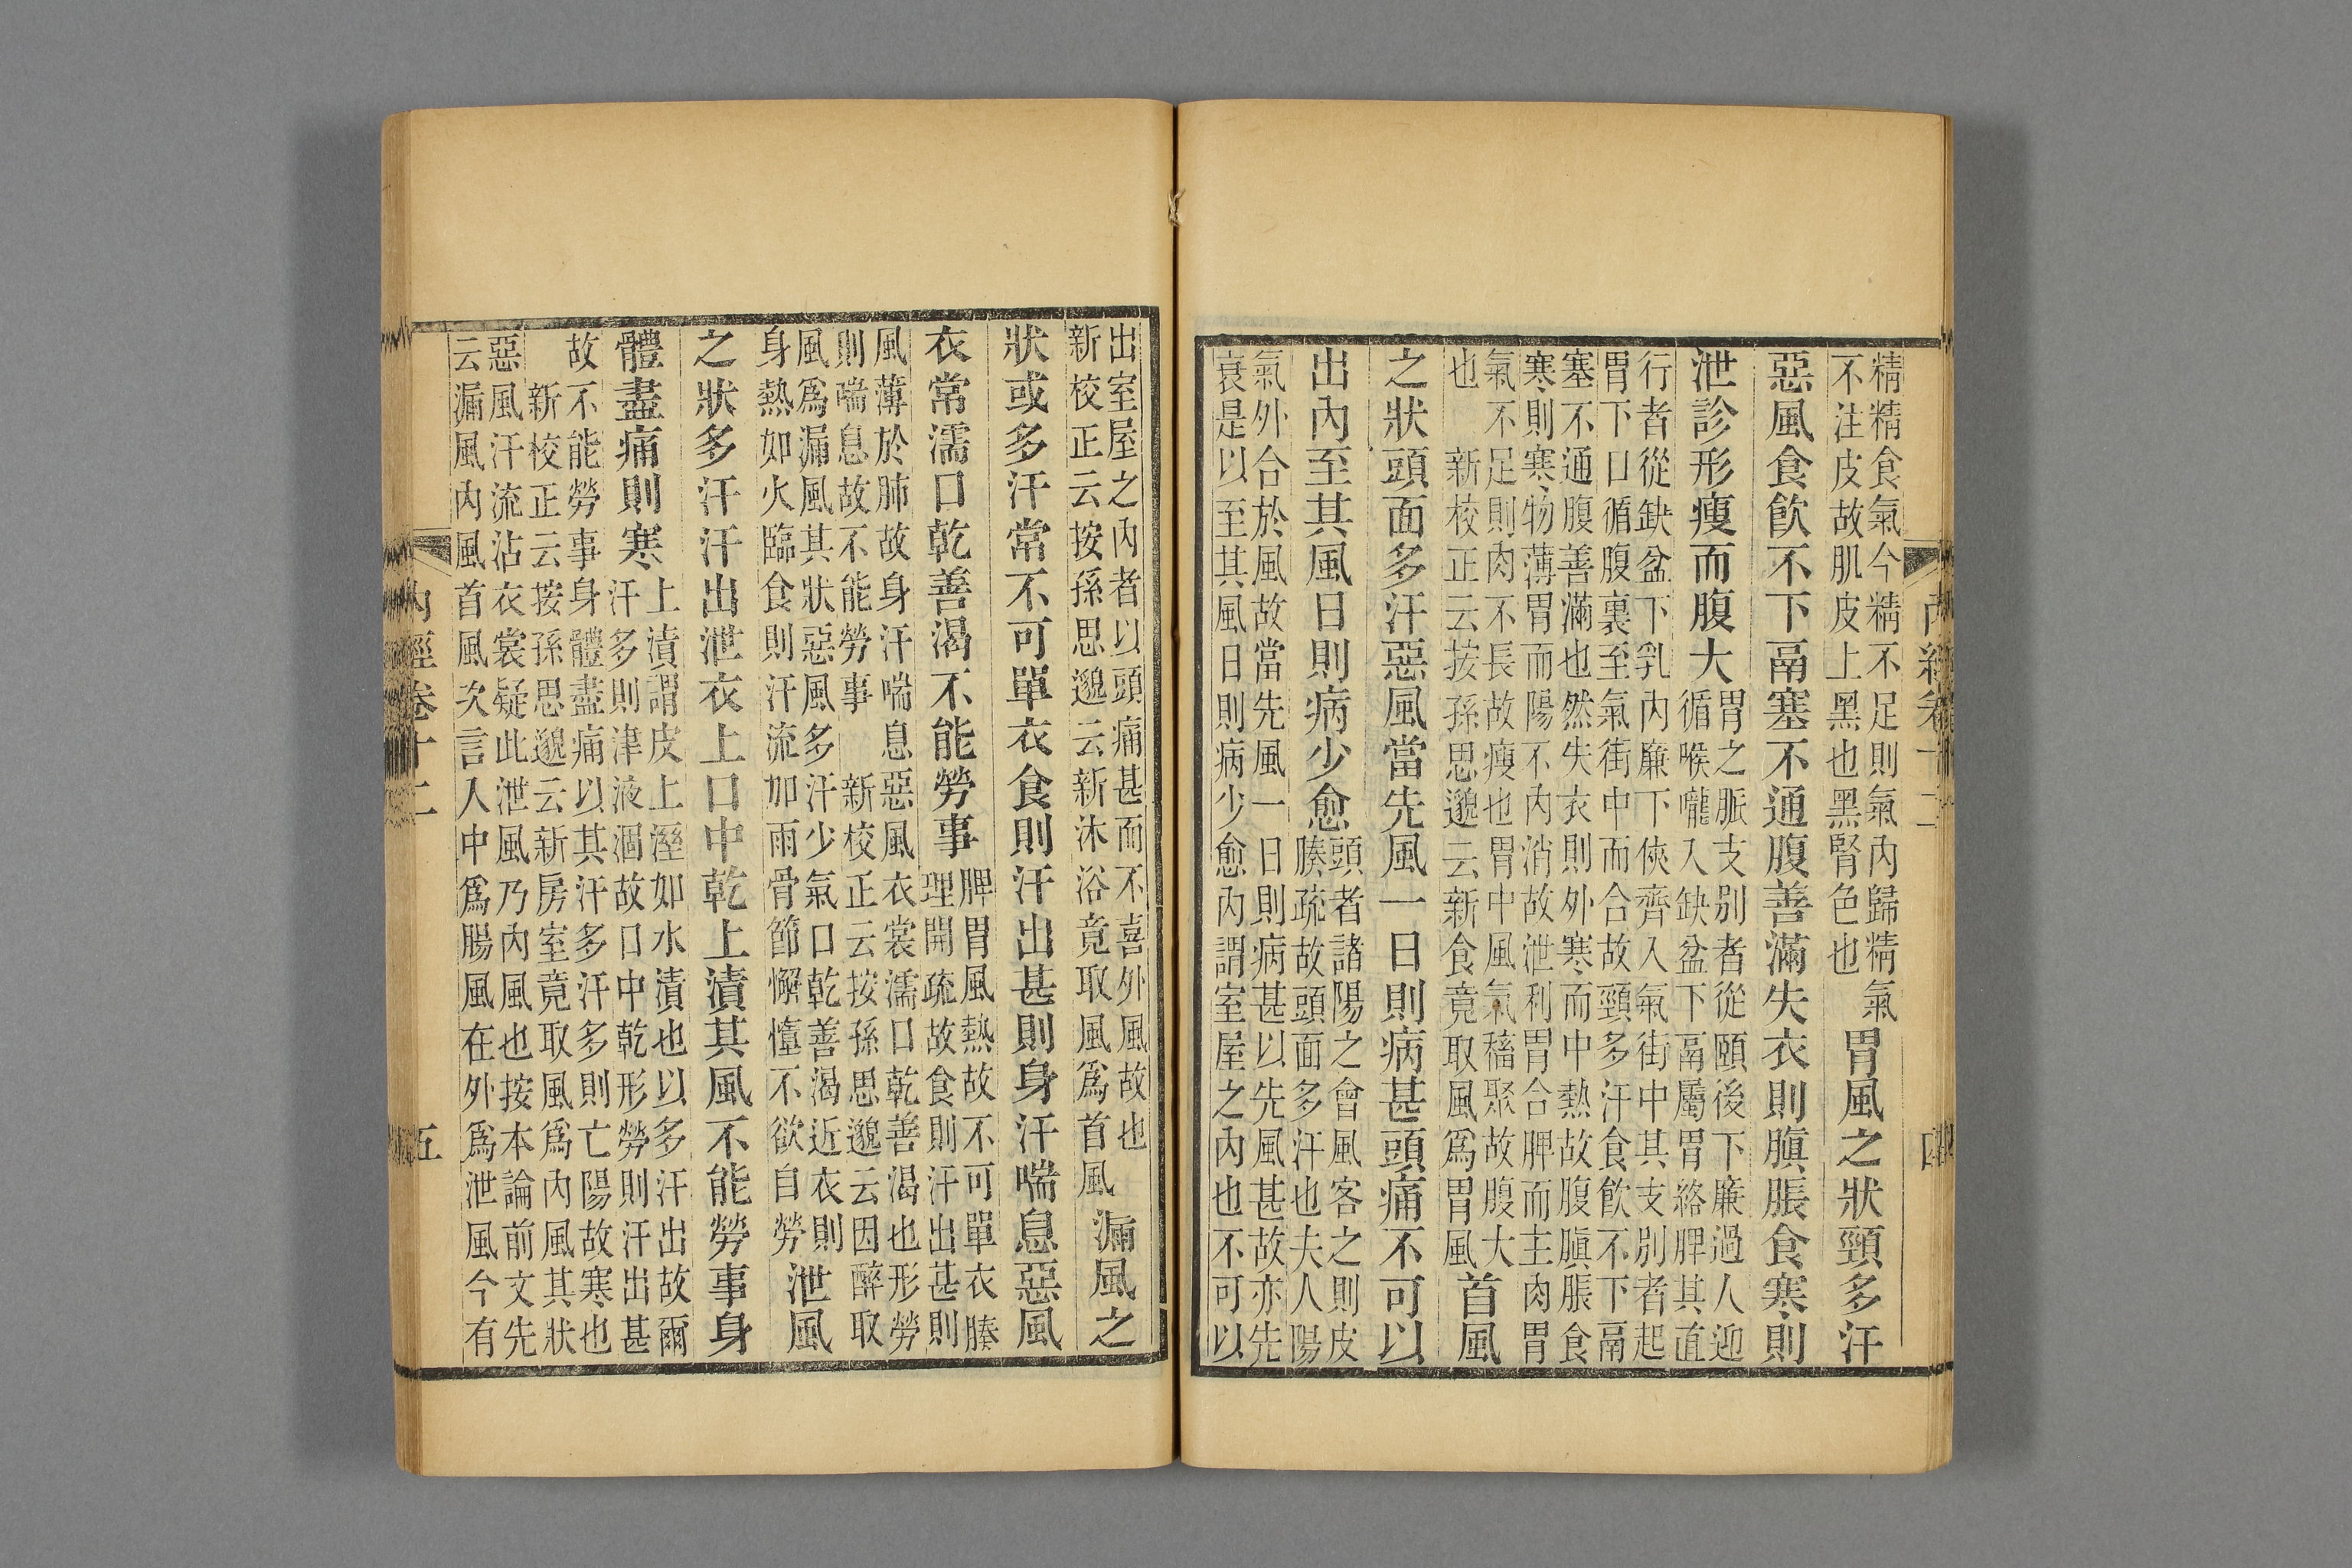 精精食氣今精不足則氣內歸精氣
不注皮故肌皮上黑也黑腎色也
胃風之狀頸多汗
惡風食飮不下鬲塞不通腹善滿失衣則䐜脹食寒則
泄診形瘦而腹大
胃之脈支別者從頤後下廉過人迎
循喉嚨入缺盆下鬲屬胃絡脾其直
行者從缺盆下乳內廉下俠齊入氣街中其支別者起
胃下口循腹裏至氣街中而合故頸多汗食飮不下鬲
塞不通腹善滿也然失衣則外寒而中熱故腹䐜脹食
寒則寒物薄胃而陽不內消故泄利胃合脾而主肉胃
氣不足則肉不長故瘦也胃中風氣稸聚故腹大
也 新校正云按孫思邈云新食竟取風爲胃風
首風
之狀頭面多汗惡風當先風一日則病甚頭痛不可以
出內至其風日則病少愈
頭者諸陽之會風客之則皮
腠疏故頭面多汗也夫人陽
氣外合於風故當先風一日則病甚以先風甚故亦先
衰是以至其風日則病少愈內謂室屋之內也不可以
內經卷十二 四
出室屋之內者以頭痛甚而不喜外風故也
新校正云按孫思邈云新沐浴竟取風爲首風
漏風之
狀或多汗常不可單衣食則汗出甚則身汗喘息惡風
衣常濡口乾善渴不能勞事
脾胃風熱故不可單衣腠
理開疏故食則汗出甚則
風薄於肺故身汗喘息惡風衣裳濡口乾善渴也形勞
則喘息故不能勞事 新校正云按孫思邈云因醉取
風爲漏風其狀惡風多汗少氣口乾善渴近衣則
身熱如火臨食則汗流如雨骨節懈惰不欲自勞
泄風
之狀多汗汗出泄衣上口中乾上漬其風不能勞事身
體盡痛則寒
上漬謂皮上溼如水漬也以多汗出故爾
汗多則津液涸故口中乾形勞則汗出甚
故不能勞事身體盡痛以其汗多汗多則亡陽故寒也
新校正云按孫思邈云新房室竟取風爲內風其狀
惡風汗流沾衣裳疑此泄風乃內風也按本論前文先
云漏風內風首風次言入中爲腸風在外爲泄風今有
內經卷十二 五